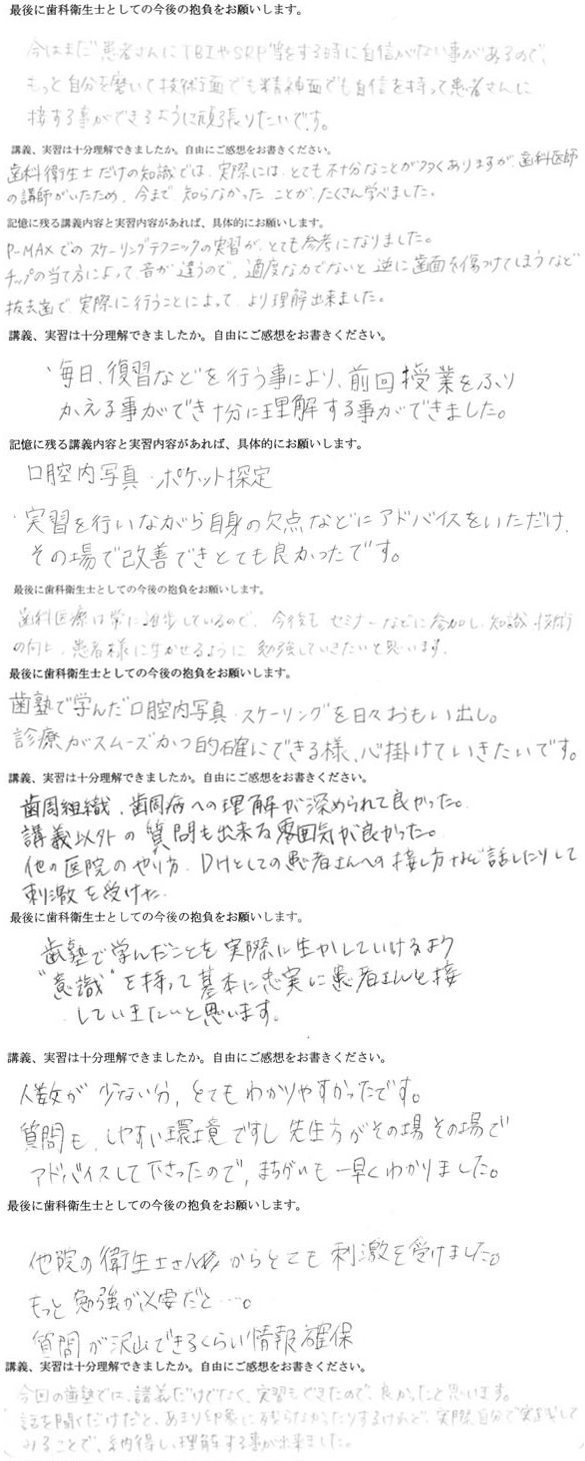 最後に歯科衛生士としての今後の抱負をお願いします。
今はまだ患者さんにTBIやSRP等をする時に自信がない事があるので、
もっと自分を磨いて技術面でも精神面でも自信を持って患者さんに
接する事ができるように頑張りたいです。
講義、実習は十分理解できましたか。自由にご感想をお書きください。
歯科衛生士だけの知識では、実際には、とても不十分なことが多くありますが、歯科医師
の講師がいたため、今まで知らなかったことが、たくさん学べました。
記憶に残る講義内容と実習内容があれば、具体的にお願いします。
P-MAXでのスケーリングテクニックの実習が、とても参考になりました。
チップの当て方によって音が違うので、適度な力でないと逆に歯面を傷つけてしまうなど
抜去歯で、実際に行うことによって、より理解出来ました。
講義、実習は十分理解できましたか。自由にご感想をお書きください。
・毎日、復習などを行う事により、前回授業をふり
かえる事ができ十分に理解する事ができました。
記憶に残る講義内容と実習内容があれば、具体的にお願いします。
口腔内写真・ポケット探定
・実習を行いながら自身の欠点などにアドバイスをいただけ、
その場で改善できとても良かったです。
最後に歯科衛生士としての今後の抱負をお願いします。
歯科医療は常に進歩しているので、今後もセミナーなどに参加し、知識、技術
の向上、患者様に生かせるように勉強していきたいと思います。
最後に歯科衛生士としての今後の抱負をお願いします。
歯塾で学んだ口腔内写真・スケーリングを日々おもい出し。
診療がスムーズかつ的確にできる様、心掛けていきたいです。
講義、実習は十分理解できましたか。自由にご感想をお書きください。
歯周組織、歯周病への理解が深められて良かった。
講義以外の質問も出来る雰囲気が良かった。
他の医院のやり方、DHとしての患者さんへの接し方など話したりして
刺激を受けた。
最後に歯科衛生士としての今後の抱負をお願いします。
歯塾で学んだことを実際に生かしていけるよう
"意識"を持って基本に忠実に患者さんと接
していきたいと思います。
講義、実習は十分理解できましたか。自由にご感想をお書きください。
人数が少ない分、とてもわかりやすかったです。
質問も、しやすい環境ですし先生方がその場その場で
アドバイスして下さったので、まちがいも一早くわかりました。
最後に歯科衛生士としての今後の抱負をお願いします。
他院の衛生士さん達からとても刺激を受けました。
もっと勉強が必要だと…。
質問が沢山できるくらい情報確保
講義、実習は十分理解できましたか。自由にご感想をお書きください。
今回の歯塾では、講義だけでなく、実習もできたので、良かったと思います。
話を聞くだけだと、あまり印象に残らなかったりするけれど、実際自分で実習して
みることで、納得し、理解する事が出来ました。